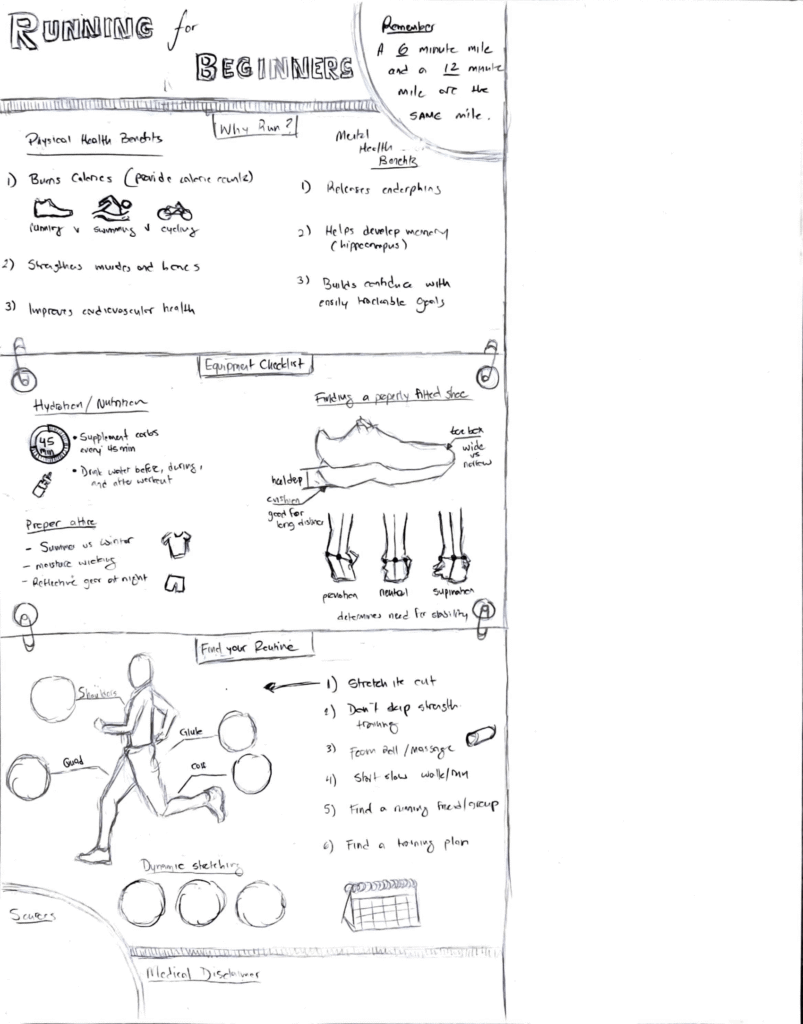 RUNNING for
BEGINNERS
Remember
A 6 minute mile
and a 12 minute
mile are the
SAME mile.
Why Run?
Physical Health Benefits
1) Burns Calories (provide calorie counts)
running v swimming v cycling
2) Strengthens muscles and bones
3) Improves cardiovascular health
Mental
Health
Benefits
1) Releases endorphins
2) Helps develop memory
(hippocampus)
3) Builds confidence with
easily trackable goals
Equipment Checklist
Hydration / Nutrition
45
min
• Supplement carbs
every 45 min
• Drink water before, during,
and after workout
Proper attire
- Summer vs Winter
- moisture wicking
- Reflective gear at night
Finding a properly fitted shoe
toe box
wide
vs
narrow
heel drop
cushion
good for
long distance
pronation neutral supination
determines need for stability
Find your Routine
Shoulders
Glute
Quad
Calf
1) Stretch it out
2) Don't skip strength
training
3) Foam Roll / Massage
4) Start slow walk/run
5) Find a running friend/group
6) Find a training plan
Dynamic stretching
Sources
Medical Disclaimer